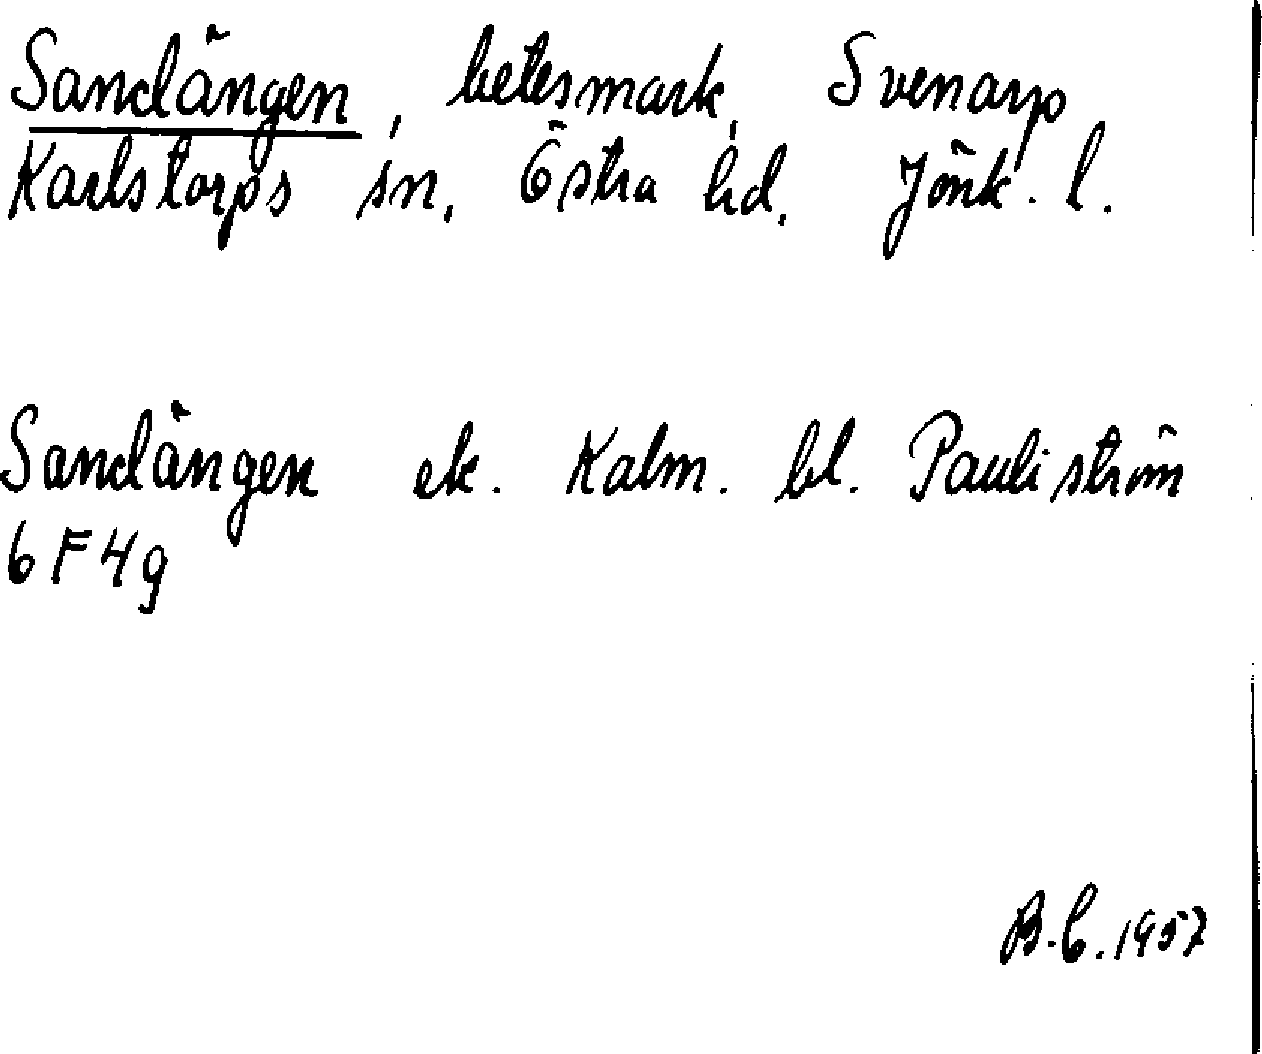 Sandängen, betesmark, Svenarp
Karlstorps sn, Östra hd, Jönk. l.
Sandängen ek. Kalm. bl. Pauliström
6 F 4 g
B.C. 1957